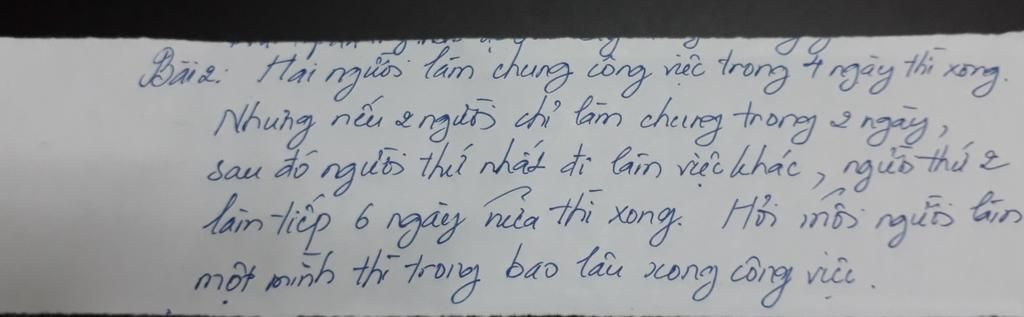 Bài 2: Hai người làm chung công việc trong 4 ngày thì xong.
Nhưng nếu 2 người chỉ làm chung trong 2 ngày,
sau đó người thứ nhất đi làm việc khác, người thứ 2
làm tiếp 6 ngày nữa thì xong. Hỏi mỗi người làm
một mình thì trong bao lâu xong công việc.